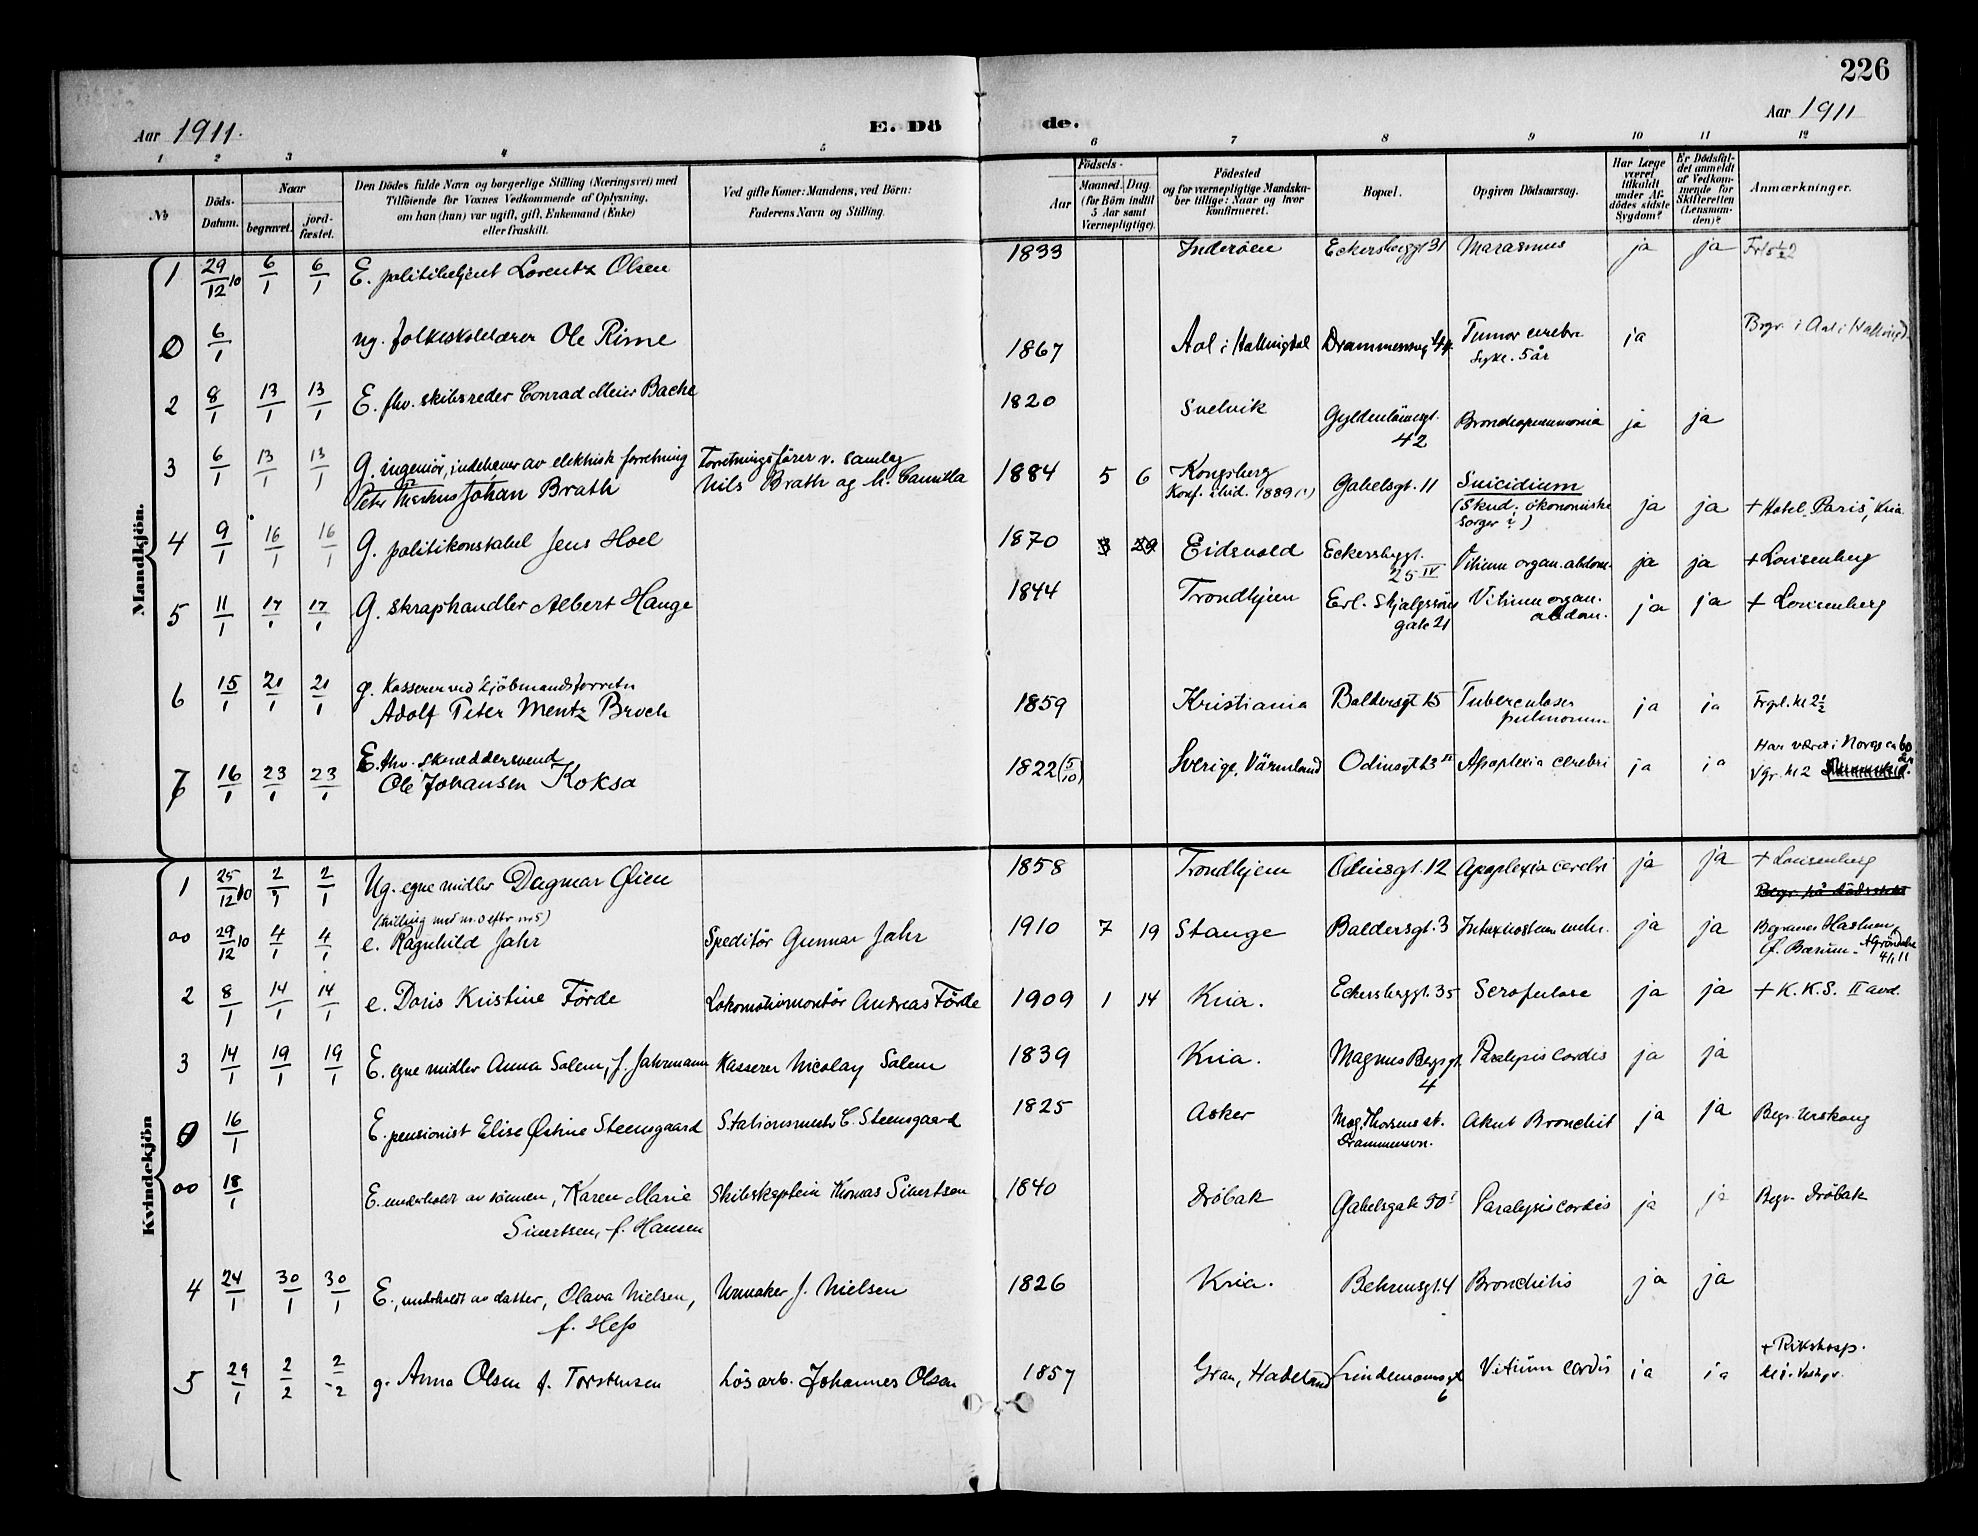 226
Aar 1911. E. Dö de. Aar 1911
1 2 3 4 5 6 7 8 9 10 11 12
№
Döds-Datum.
Naar
begravet. jord-fæstet.
Den Dödes fulde Navn og borgerlige Stilling (Næringsvei) med
Tilföiende for Voxnes Vedkommende af Oplysning,
om han (hun) var ugift, gift, Enkemand (Enke)
eller fraskilt.
Ved gifte Koner: Mandens, ved Börn:
Faderens Navn og Stilling.
Födsels-
Aar
Maaned. Dag.
(for Börn indtil
5 Aar samt
Værnepligtige).
Födested
og for værnepligtige Mandskaber tillige: Naar og hvor
konfirmeret.
Bopæl.
Opgiven Dödsaarsag.
Har Læge
været
tilkaldt
under Afdödes sidste
Sygdom?
Er Dödsfaldet anmeldt
af Vedkommende for
Skifteretten
(Lensmanden)?
Anmærkninger.
Mandkjön.
1 29/12 10 6/1 6/1 E. politibetjent Lorentz Olsen 1833 Inderöen Eckersbergsgt 31 Marasmus ja ja
0 6/1 ug. folkeskolelærer Ole Rime 1867 Aal i Hallingdal Drammensvg 44 Tumor cerebri ja Begr. i Aal i Hallingd.
Syk. 5 år
2 8/1 13/1 13/1 E. fhv. skibsreder Conrad Meier Bache 1820 Svelvik Gyldenlövesgt. 42 Bronchopneumonia ja ja
3 6/1 13/1 13/1 G. ingeniör, indehaver av elektrisk forretning Forretningsfører v. samlag 1884 5 6 Kongsberg Gabelsgt. 11 Suicidium ja ja + Hotel "Paris", Kria
Peter Markus Johan Brath Nils Brath og h. Camilla Konf. ibid. 1889 (Skud; ökonomiske sorger?)
4 9/1 16/1 16/1 G. politikonstabel Jens Hoel 1870 Eidsvold Eckersbgt. 25 IV Vitium organ. abdom. ja ja + Lovisenberg
5 11/1 17/1 17/1 G. skraphandler Albert Hauge 1844 Trondhjem Erl. Skjalgssöns gate 21 Vitium organ. abdom. ja ja + Lovisenberg
6 15/1 21/1 21/1 g. Kasserer ved kjöbmandsforretn 1859 Kristiania Baldersgt 15 Tuberculosis pulmonum ja ja Frpl. kl 2½
Adolf Peter Mentz Broch
7 16/1 23/1 23/1 E. fhv. skræddersvend 1822 (5/10) Sverige, Värmland Odinsgt 13 II Apoplexia cerebri ja ja Har været i Norge ca 60 år.
Ole Johansen Koksa Vgr. kl 2
Kvindekjön
1 25/12 10 2/1 2/1 Ug. egne midler Dagmar Öien 1858 Trondhjem Odinsgt. 12 Apoplexia cerebri ja ja + Lovisenberg
(tvilling med nr. 0 efter nr 5)
00 29/12 10 4/1 4/1 e. Ragnhild Jahr Speditör Gunnar Jahr 1910 7 19 Stange Baldersgt. 3 ja ja Begraves Haslum, Ø. Bærum. 4/1 11
2 8/1 14/1 14/1 e. Doris Kristine Förde Lokomotivmontör Andreas Förde 1909 1 14 Kria. Eckersbergsgt. 35 Scrofulose ja ja + K. K. S. II avd.
3 14/1 19/1 19/1 E. egne midler Anna Salem, f. Jahrmann Kasserer Nicolay Salem 1839 Kria. Magnus Bergs gt. 4 Paralysis cordis ja ja
0 16/1 E. pensionist Elise Östine Steensgaard Stationsmester C. Steensgaard 1825 Asker Mog. Thorsens st. Drammensvn. Akut Bronchit ja ja Begr. Urskoug
00 18/1 E. underholdt av sönnen, Karen Marie Skibskaptein Thomas Sivertsen 1840 Dröbak Gabelsgate 50 I Paralysis cordis ja ja Begr. Dröbak
Sivertsen, f. Hansen
4 24/1 30/1 30/1 E., underholdt av datter, Olava Nielsen, Urmaker J. Nielsen 1826 Kria. Behrensgt. 4 Bronchitis ja ja
f. Hess
5 29/1 2/2 2/2 g. Anna Olsen f. Torstensen Lös arb. Johannes Olsen 1857 Gran, Hadeland Lindemansgt 6 Vitium cordis ja ja + Rikshosp.
kl 1. Vestgr.